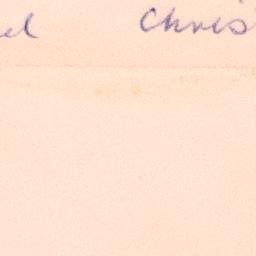 el Chris